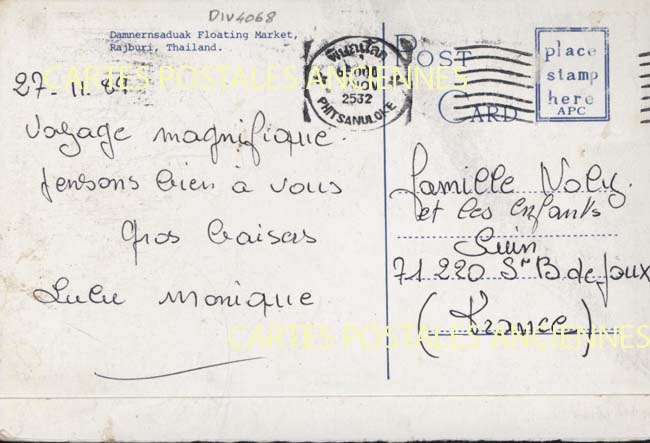 DIV4068
Damnernsaduak Floating Market,
Rajburi, Thailand.
CARTES POSTALES ANCIENNES
27-11-89
Voyage magnifique.
Pensons bien à vous
Gros baisers
Lulu Monique
พิษณุโลก
NOV
2532
PHITSANULOKE
POST
CARD
place
stamp
here
APC
Famille Noly.
et les enfants
Suin
71 220 St B de Joux
(France)
CARTES POSTALES ANCIENNES